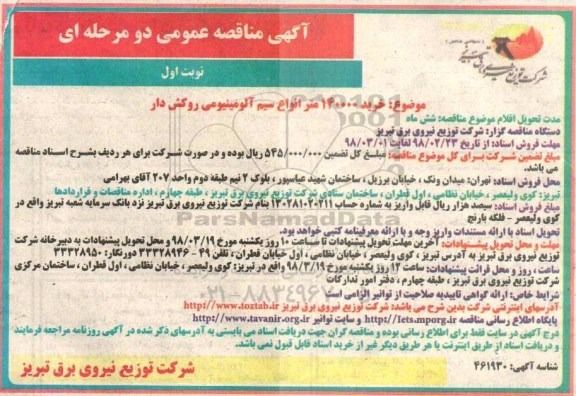 آگهی مناقصه عمومی دو مرحله ای
نوبت اول
(سهامی خاص)
شرکت توزیع نیروی برق تبریز
موضوع: خرید ۱۴۰۰۰۰ متر انواع سیم آلومینیومی روکش دار
مدت تحویل اقلام موضوع مناقصه: شش ماه
دستگاه مناقصه گزار: شرکت توزیع نیروی برق تبریز
مهلت فروش اسناد: از تاریخ ۹۸/۰۲/۲۳ لغایت ۹۸/۰۳/۰۱
مبلغ تضمین شرکت برای کل موضوع مناقصه: مبلغ کل تضمین ۵۴۵/۰۰۰/۰۰۰ ریال بوده و در صورت شرکت برای هر ردیف بشرح اسناد مناقصه
می باشد.
محل فروش اسناد: تهران: میدان ونک، خیابان برزیل، ساختمان شهید عباسپور، بلوک ۲ نیم طبقه دوم واحد ۲۰۷ آقای بهرامی
تبریز: کوی ولیعصر، خیابان نظامی، اول قطران، ساختمان ستادی شرکت توزیع نیروی برق تبریز، طبقه چهارم، اداره مناقصات و قراردادها
مبلغ فروش اسناد: سیصد هزار ریال قابل واریز به شماره حساب ۱۳۰۲۸۱۰۲۰۲۱۱ بنام شرکت توزیع نیروی برق تبریز نزد بانک سرمایه شعبه تبریز واقع در
کوی ولیعصر - فلکه بارنج
تحویل اسناد با ارائه مستندات واریز وجه و با ارائه معرفینامه کتبی خواهد بود.
مهلت و محل تحویل پیشنهادات: آخرین مهلت تحویل پیشنهادات تا ساعت ۱۰ روز یکشنبه مورخ ۹۸/۰۳/۱۹ و محل تحویل پیشنهادات به دبیرخانه شرکت
توزیع نیروی برق تبریز به آدرس تبریز، کوی ولیعصر، خیابان نظامی، اول خیابان قطران، تلفن ۴۹ - ۳۳۲۸۹۴۶ دورنگار: ۳۳۳۲۸۹۵۰
ساعت، روز و محل قرائت پیشنهادات: ساعت ۱۲ روز یکشنبه مورخ ۹۸/۳/۱۹ واقع در تبریز: کوی ولیعصر، خیابان نظامی، اول قطران، ساختمان مرکزی
شرکت توزیع نیروی برق تبریز، طبقه چهارم، دفتر امور تدارکات
شرایط خاص: ارائه گواهی تاییدیه صلاحیت از توانیر الزامی است
آدرسهای اینترنتی شرکت بدین شرح می باشد: شرکت توزیع نیروی برق تبریز http://www.toztab.ir
پایگاه اطلاع رسانی مناقصه http://Iets.mporg.ir و سایت توانیر http//www.tavanir.org.ir
درج آگهی در سایت فقط برای اطلاع رسانی بوده و مناقصه گران جهت دریافت اسناد می بایستی به آدرسهای ذکر شده در آگهی روزنامه مراجعه فرمایند
و دریافت اسناد از طریق اینترنت یا هر طریق دیگر غیر از خرید اسناد قابل قبول نمی باشد.
شناسه آگهی: ۴۶۱۹۳۰
شرکت توزیع نیروی برق تبریز
ParsNamadData